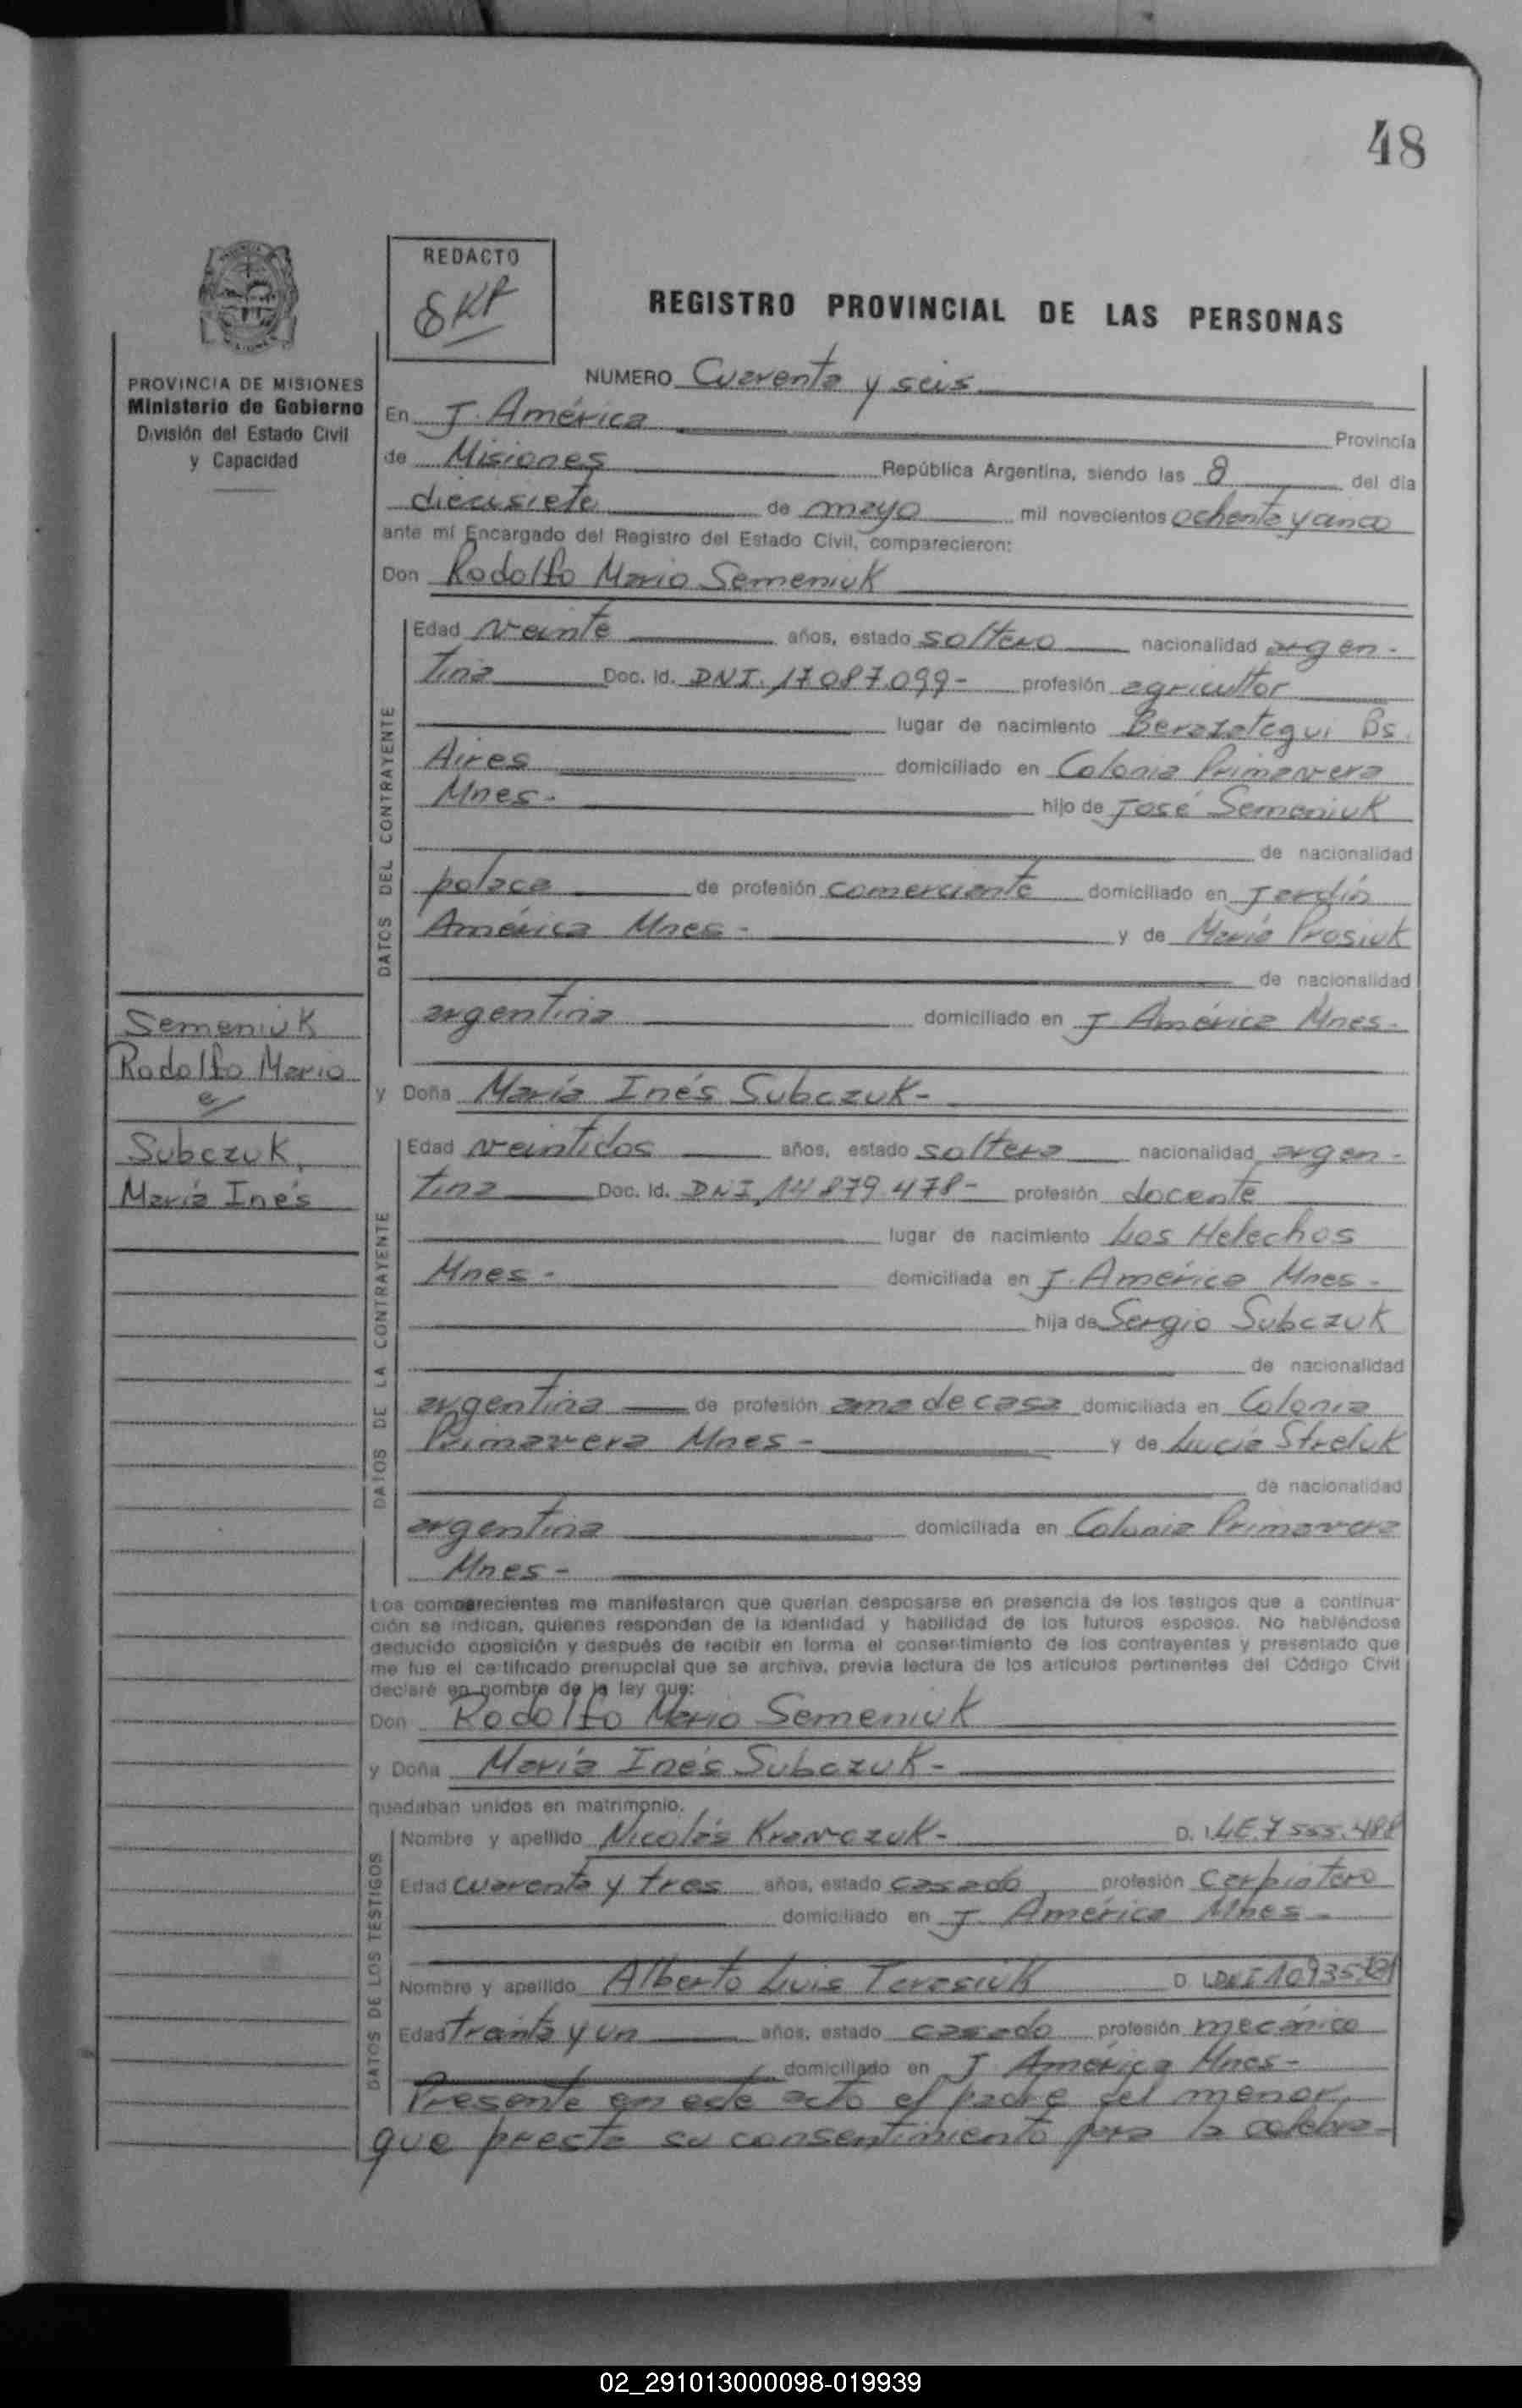 48
REDACTO
REGISTRO PROVINCIAL DE LAS PERSONAS
PROVINCIA DE MISIONES
Ministerio de Gobierno
División del Estado Civil
y Capacidad
NUMERO Cuarenta y seis
En J. América Provincia
de Misiones República Argentina, siendo las 8 del día
diecisiete de mayo mil novecientos ochenta y cinco
ante mí Encargado del Registro del Estado Civil, comparecieron:
Don Rodolfo Mario Semeniuk
DATOS DEL CONTRAYENTE
Edad veinte años, estado soltero nacionalidad argen-
tina Doc. Id. DNI. 17.087.099- profesión agricultor
lugar de nacimiento Berazategui Bs.
Aires domiciliado en Colonia Primavera
Mnes- hijo de José Semeniuk
de nacionalidad
polaca de profesión comerciante domiciliado en Jardín
América Mnes- y de María Prosiuk
de nacionalidad
argentina domiciliado en J América Mnes-
Semeniuk
Rodolfo Mario
c/
Subczuk,
María Inés
y Doña María Inés Subczuk-
DATOS DE LA CONTRAYENTE
Edad veintidos años, estado soltera nacionalidad argen-
tina Doc. Id. DNI 14.879.478- profesión docente
lugar de nacimiento Los Helechos
Mnes- domiciliada en J. América Mnes-
hija de Sergio Subczuk
de nacionalidad
argentina de profesión ama de casa domiciliada en Colonia
Primavera Mnes- y de Lucía Streluk
de nacionalidad
argentina domiciliada en Colonia Primavera
Mnes-
Los comparecientes me manifestaron que querían desposarse en presencia de los testigos que a continua-
ción se indican, quienes responden de la identidad y habilidad de los futuros esposos. No habiéndose
deducido oposición y después de recibir en forma el consentimiento de los contrayentes y presentado que
me fue el certificado prenupcial que se archiva, previa lectura de los artículos pertinentes del Código Civil
declaré en nombre de la ley que:
Don Rodolfo Mario Semeniuk
y Doña María Inés Subczuk-
quedaban unidos en matrimonio.
DATOS DE LOS TESTIGOS
Nombre y apellido Nicolás Krawczuk- D. I. LE. 7.555.488
Edad cuarenta y tres años, estado casado profesión carpintero
domiciliado en J. América Mnes-
Nombre y apellido Alberto Luis Teresiuk D. I. DNI
Edad treinta y un años, estado casado profesión mecánico
domiciliado en J América Mnes-
Presente en este acto el padre del menor
que presta su consentimiento para la celebra-
02_291013000098-019939